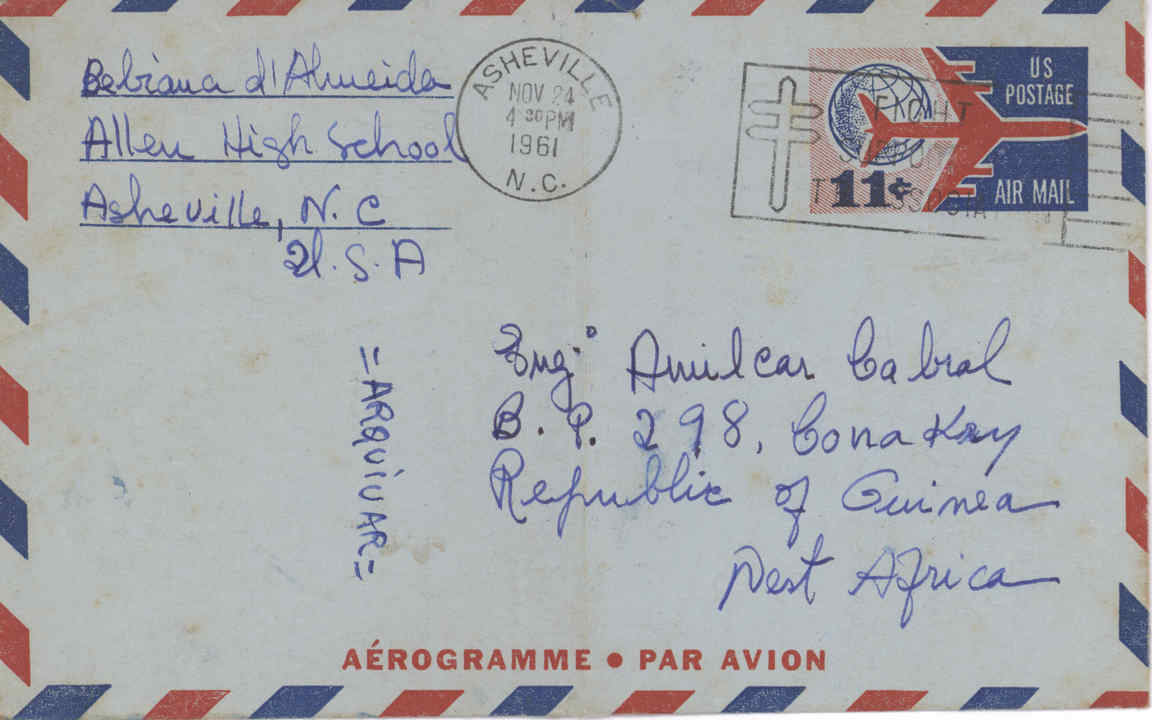 Bebiana d'Almeida
Allen High School
Asheville, N.C
U.S.A
ASHEVILLE
NOV 24
4 30 PM
1961
N.C.
FIGHT
US
POSTAGE
11¢
AIR MAIL
=ARQUIVAR=
Eng.º Amilcar Cabral
B.P. 298, Conakry
Republic of Guinea
West Africa
AÉROGRAMME • PAR AVION